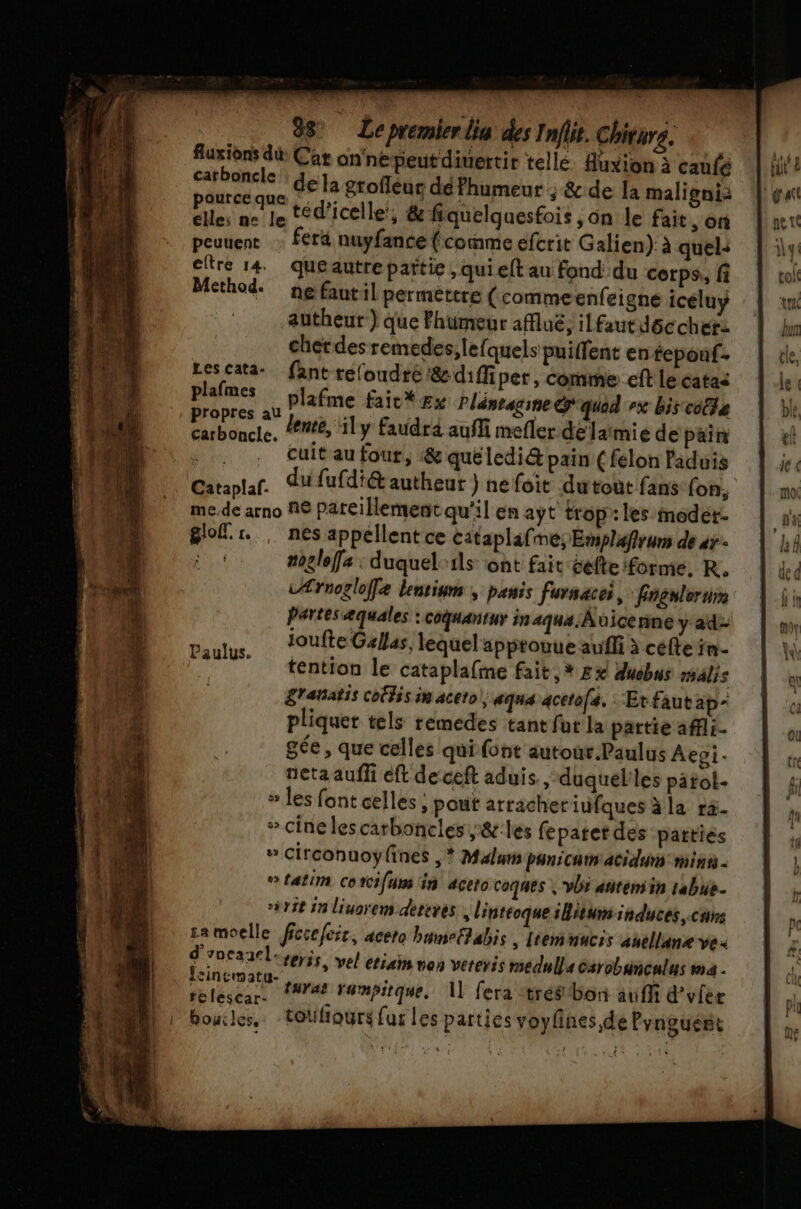 98 Le premier liu des Instit. Chirurg.
fluxions du
carboncle
pource que
elles ne le
peuuent
estre 14.
Method.
Car on ne peut diuertir telle fluxion à cause
de la grosseur de l'humeur, & de la maligni-
té d'icelle, & si quelquesfois, on le fait, on
fera nuysance (comme escrit Galien) à quel-
que autre partie, qui est au fond du corps, si
ne faut il permettre (comme enseigne iceluy
autheur) que l'humeur affluë, il faut dõc cher-
cher des remedes, lesquels puissent en repous-
sant resoudre & dissiper, comme est le cata-
Les cata-
plasmes
propres au
carboncle.
plasme faict* Ex Plantagine & quod ex bis cocta
lente, il y faudra aussi mesler de la mie de pain
cuit au four, & que ledict pain (selon l'aduis
du susdict autheur) ne soit du tout sans son,
Cataplas-
me de arno
gloss. 1.
ne pareillement qu'il en ayt trop: les moder-
nes appellent ce cataplasme, Emplastrum de ar-
noglossa: duquel ils ont fait ceste forme. R.
Arnoglossæ lentium, panis furnacei, singulorum
partes æquales: coquantur in aqua. Auicenne y ad-
iouste Gallas, lequel approuue aussi à ceste in-
Paulus.
tention le cataplasme fait, * Ex duebus malis
granatis coctis in aceto, aqua acetosa. Et faut ap-
pliquer tels remedes tant sur la partie affli-
gée, que celles qui sont autour. Paulus Aegi-
neta aussi est de cest aduis, duquel les parol-
» les sont celles, pour arracher iusques à la ra-
» cine les carboncles, & les separer des parties
» circonuoysines, * Malum punicum acidum minu-
» tatim coscisum in aceto coques, vbi autem in tabue-
» rit in liuorem deteres, linteoque illitum induces, cum
siccesceit, aceto humectabis, Item nucis auellanæ ve-
teris, vel etiam non veteris medulla carobunculus ma-
turat rumpitque. Il sera tres bon aussi d'vser
tousiours sur les parties voysines, de l'vnguent
La moelle
boucles.